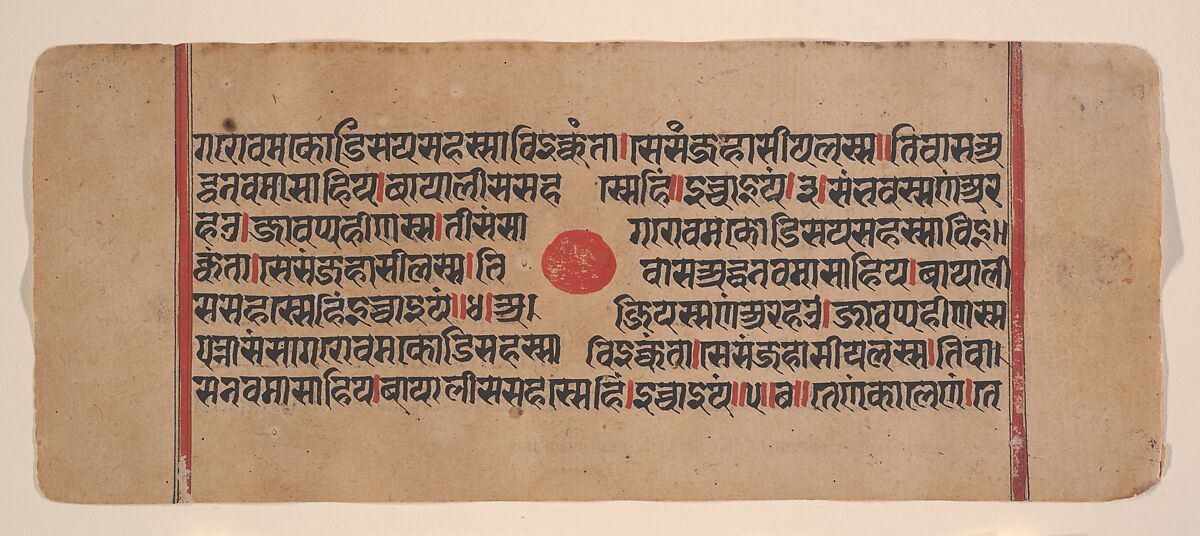 गरोवमकोडिसयसहस्साविइक्कंता।सेसंजहासीयलस्स॥तिवासअ
द्धनवमासाहिय।बायालीससह स्सेहिं॥इच्चाइयं।३।संभवस्सणंअर
हउ।जावप्पहीणस्स।तीसंसा गरोवमकोडिसयसहस्साविइ॥
क्कंता।सेसंजहासीलस्स।ति वासअद्धनवमासाहिय।बायाली
ससहस्सेहिंइच्चाइयं॥४।अ। जियस्सणंअरहउ।जावप्पहीणस्स
पन्नासंसागरोवमकोडिसहस्सा विइक्कंता।सेसंजहासीयलस्स।तिवा।
सनवमासाहिय।बायालीससहस्सेहिं।इच्चाइयं॥५।ब॥तेणंकालेणं।ते